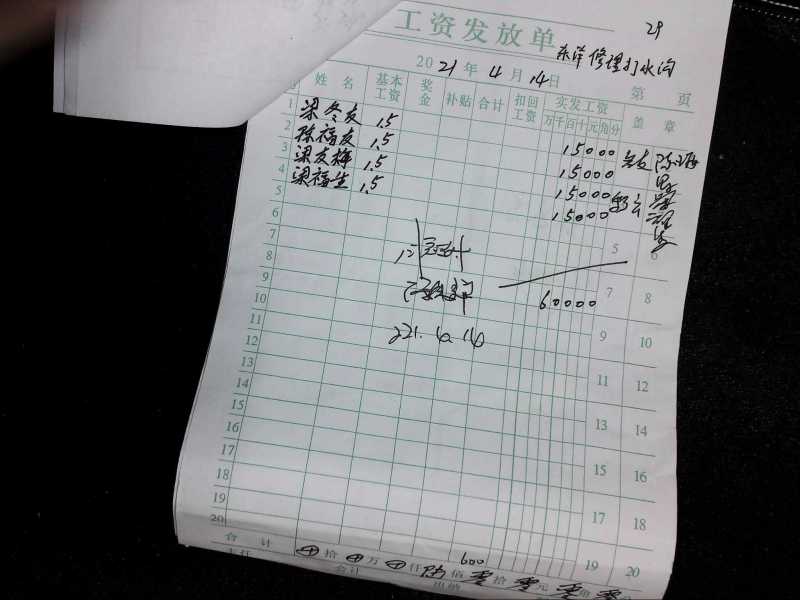 29
工资发放单
东洋修理打水沟
2021年4月14日
第 页
姓 名 基本工资 奖金 补贴 合计 扣回工资 实发工资 盖 章
万千百十元角分
1 梁冬友 1.5 15000
2 陈福友 1.5 15000
3 梁友梅 1.5 15000
4 梁福生 1.5 15000
5
6 5 6
7
8 7 8
60000
9
10 9 10
221.4.14
11
12 11 12
13
14 13 14
15
16 15 16
17
18 17 18
19
20 19 20
600
合 计 拾 万 仟 陆 佰 零 拾 零 元 零 角 零
主任 会计 出纳